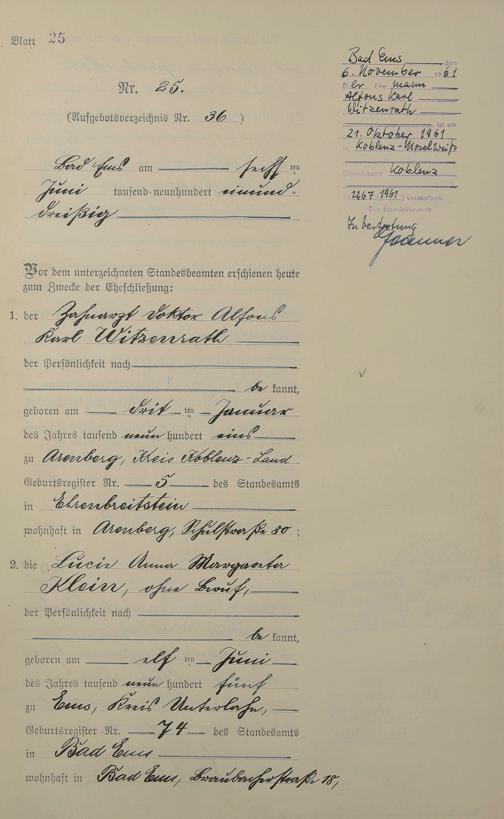 Blatt 25
Nr. 25.
(Aufgebotsverzeichnis Nr. 36)
Bad Ems am sechsten
Juni tausend neunhundert einund-
dreißig
Vor dem unterzeichneten Standesbeamten erschienen heute
zum Zwecke der Eheschließung:
1. der Zahnarzt Doktor Alfons
Karl Witzenrath
der Persönlichkeit nach
be kannt,
geboren am drit ten Januar
des Jahres tausend neun hundert eins
zu Arenberg, Kreis Koblenz-Land
Geburtsregister Nr. 5 des Standesamts
in Ehrenbreitstein
wohnhaft in Arenberg, Schulstraße 80;
2. die Lucie Anna Margareta
Klein, ohne Beruf,
der Persönlichkeit nach
be kannt,
geboren am elf ten Juni
des Jahres tausend neun hundert fünf
zu Ems, Kreis Unterlahn,
Geburtsregister Nr. 74 des Standesamts
in Bad Ems
wohnhaft in Bad Ems, Braubacherstraße 18,
Bad Ems, den
6. November 1961
Der Ehemann
Alfons Karl
Witzenrath
ist am
21. Oktober 1961
in Koblenz-Moselweiß
(Standesamt Koblenz
1267/1961) verstorben.
Der Standesbeamte
In Vertretung